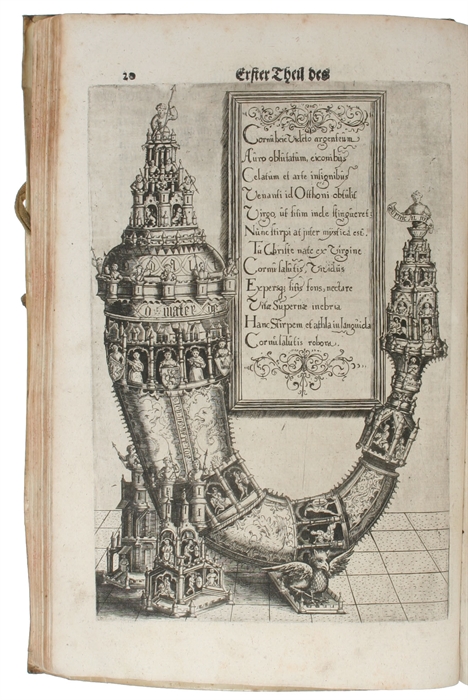 20
Erster Theil des
Cornu hoc Videto argenteum
Auro oblitatum, ex
Celatum et arte insignibus
Venanti id Otthoni obtulit
Virgo, ut sitim inde stingueret:
Nunc stirpi at inter est.
Tu Christe nate ex Virgine
Cornu salutis,
fons, nectare
Vitæ Supernæ inebria
Hanc Stirpem et languida
Cornu salutis robora.
o mater